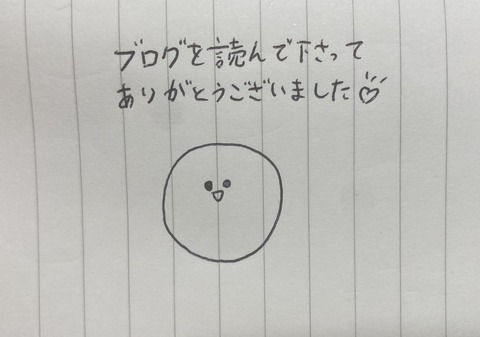 ブログを読んで下さって
ありがとうございました♡